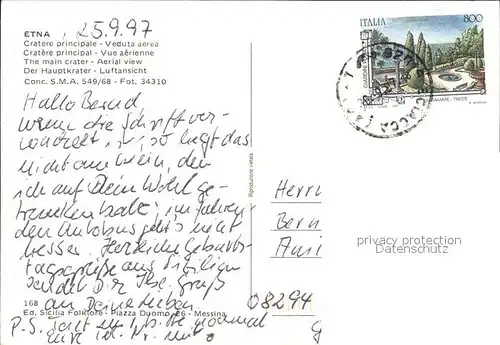 ETNA , 25.9.97
Cratere principale - Veduta aerea
Cratère principal - Vue aérienne
The main crater - Aerial view
Der Hauptkrater - Luftansicht
Conc. S.M.A. 549/68 - Fot. 34310
ITALIA 800
Hallo Bernd,
wenn die Schrift ver-
wackelt ist, so liegt das
nicht am Wein, den
ich auf Dein Wohl ge-
trunken habe; im fahren-
den Autobus geht's nicht
besser. Herzliche Geburts-
tagsgrüße aus Sizilien
sendet Dir Gruß
an Deine Lieben
Riproduzione vietata
Herrn
Bern
privacy protection
Datenschutz
08294
168
Ed. Sicilia Folklore - Piazza Duomo, 26 - Messina
P.S. bitte nochmal
Tel. Nr. mit